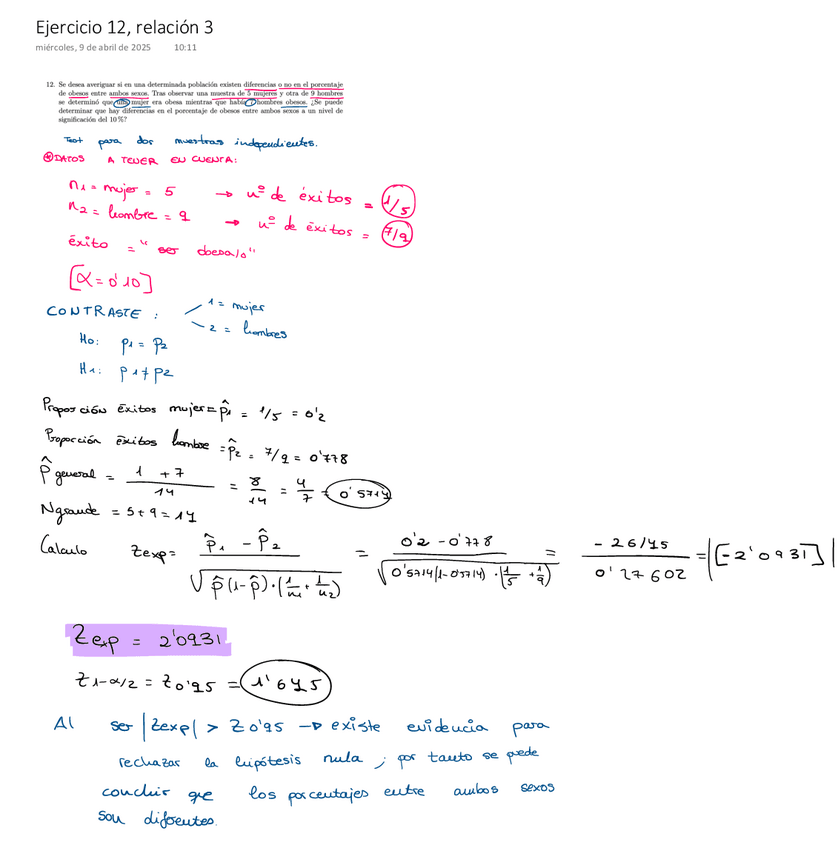 Ejercicio 12, relación 3
miércoles, 9 de abril de 2025 10:11
12. Se desea averiguar si en una determinada población existen diferencias o no en el porcentaje
de obesos entre ambos sexos. Tras observar una muestra de 5 mujeres y otra de 9 hombres
se determinó que una mujer era obesa mientras que había 7 hombres obesos. ¿Se puede
determinar que hay diferencias en el porcentaje de obesos entre ambos sexos a un nivel de
significación del 10%?
Test para dos muestras independientes.
* DATOS A TENER EN CUENTA:
n1 = mujer = 5 → nº de éxitos = 1/5
n2 = hombre = 9 → nº de éxitos = 7/9
éxito = "ser obesa/o"
[α = 0'10]
CONTRASTE: 1 = mujer
2 = hombres
H0: p1 = p2
H1: p1 ≠ p2
Proporción éxitos mujer = p̂1 = 1/5 = 0'2
Proporción éxitos hombre = p̂2 = 7/9 = 0'778
p̂ general = (1 + 7)/14 = 8/14 = 4/7 = 0'5714
N grande = 5 + 9 = 14
Calculo Zexp = (p̂1 - p̂2)/√(p̂(1-p̂)·(1/n1 + 1/n2)) = (0'2 - 0'778)/√(0'5714(1-0'5714)·(1/5 + 1/9)) = (-26/45)/0'27602 = |[-2'0931]|
Zexp = 2'0931
Z1-α/2 = Z0'95 = 1'645
Al ser |Zexp| > Z0'95 → existe evidencia para
rechazar la hipótesis nula; por tanto se puede
concluir que los porcentajes entre ambos sexos
son diferentes.